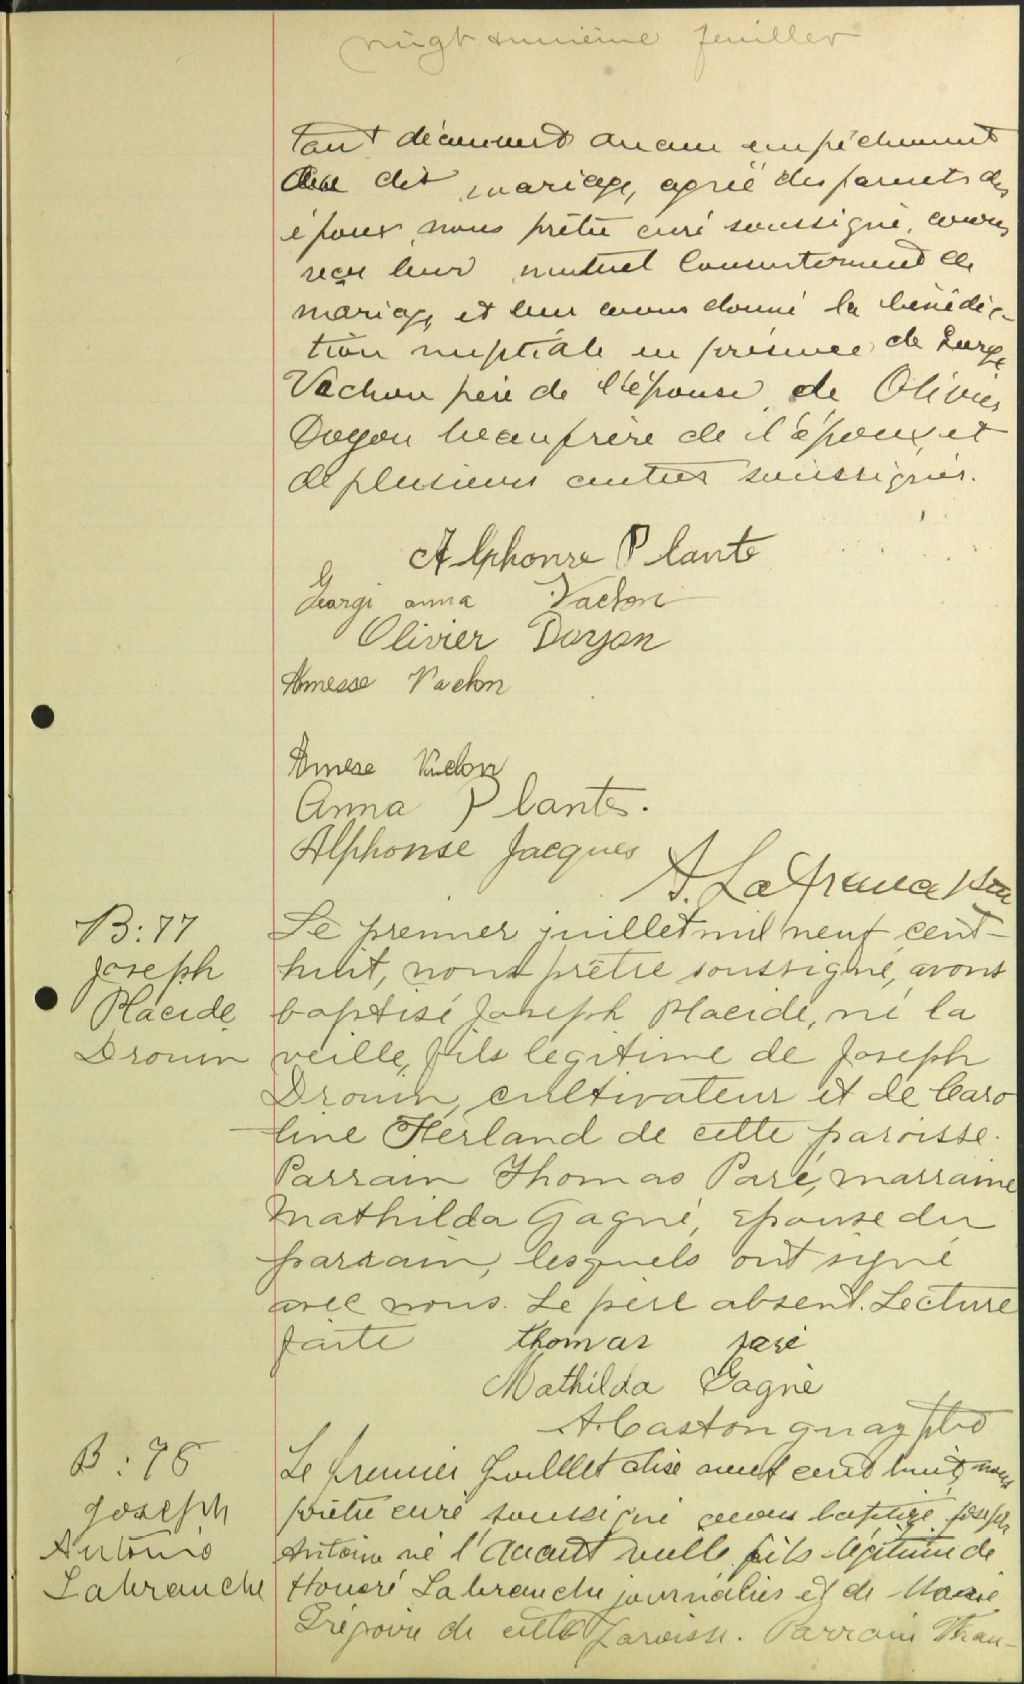 vingt unième feuillet
tant découvert aucun empêchement
au dit mariage, agréé des parents des
époux, nous prêtre curé soussigné, avons
reçu leur mutuel consentement de
mariage et leur avons donné la bénédic-
tion nuptiale en présence de
Vachon père de l'épouse, de Olivier
Doyon beaufrère de l'époux, et
de plusieurs autres soussignés.
Alphonse Plante
Georgi anna Vachon
Olivier Doyon
Amesse Vachon
Amese Vachon
Anna Plante.
Alphonse Jacques
A. Lafrance ptre
B: 77
Joseph
Placide
Drouin
Le premier juillet mil neuf cent-
huit, nous prêtre soussigné, avons
baptisé Joseph Placide, né la
veille, fils legitime de Joseph
Drouin, cultivateur et de Caro
line Ferland de cette paroisse.
Parrain Thomas Paré, marraine
Mathilda Gagné, épouse du
parrain, lesquels ont signé
avec nous. Le père absent. Lecture
faite
thomas pare
Mathilda Gagné
A. Castonguay ptre
B: 78
Joseph
Antonio
Labranche
Le premier Juilllet neuf cent huit, nous
prêtre curé soussigné avons baptisé Joseph
né l'avant veille fils légitime de
Honoré Labranche journalier et de Marie
Grégoire de cette paroisse. Parrain